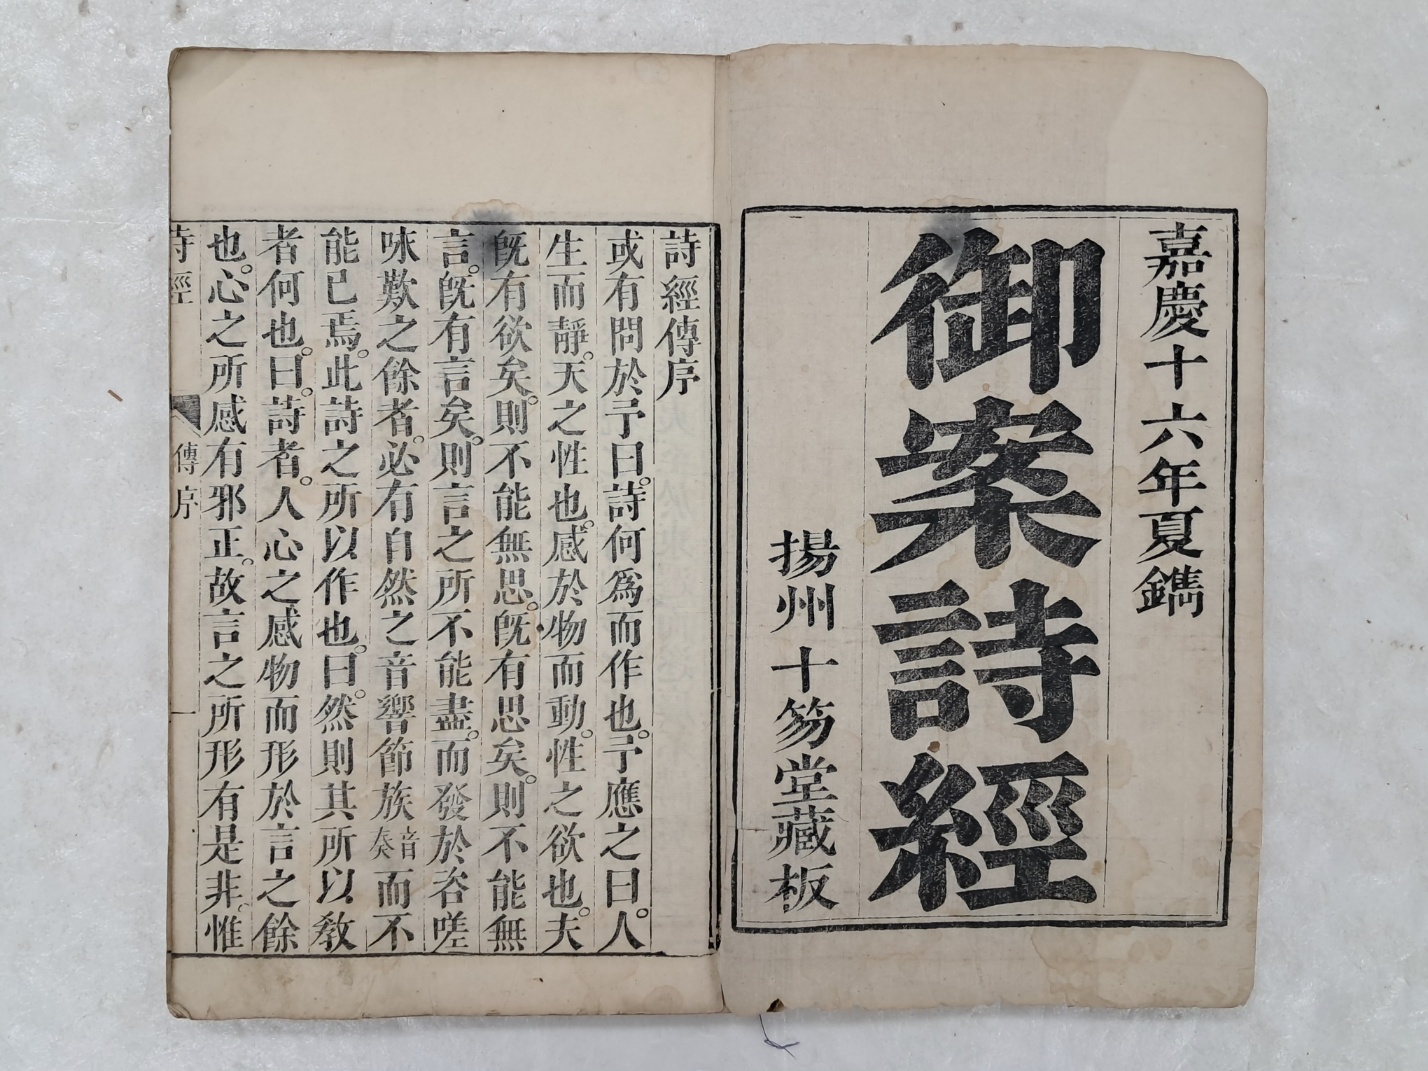 嘉慶十六年夏鐫
御案詩經
揚州十笏堂藏板
詩經傳序
或有問於予曰。詩何爲而作也。予應之曰。人
生而靜。天之性也。感於物而動。性之欲也。夫
旣有欲矣。則不能無思。旣有思矣。則不能無
言。旣有言矣。則言之所不能盡。而發於咨嗟
咏歎之餘者。必有自然之音響節族音奏而不
能已焉。此詩之所以作也。曰。然則其所以敎
者何也。曰。詩者。人心之感物而形於言之餘
也。心之所感有邪正。故言之所形有是非。惟
詩經 傳序 一